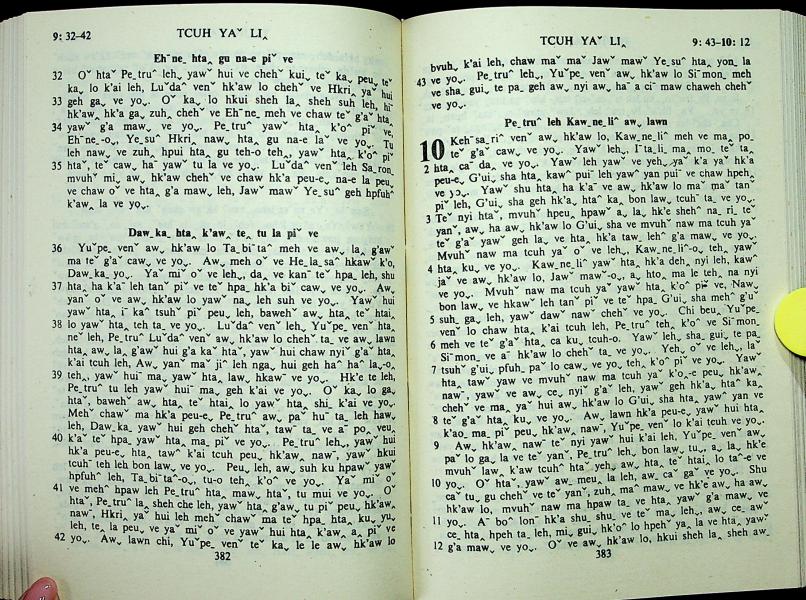 9: 32-42 TCUH YAˇ LIꞈ
Ehˉne_ htaꞈ gu na-e piˇ ve
32 Oˇ htaˇ Pe_truˆ lehˬ, yawˇ hui ve chehˇ kuiˬ teˇ kaˬ peuˬ teˇ
kaˬ lo k'ai leh, Luˇdaˆ venˇ hk'aw lo chehˇ ve Hkriˬ yaˇ hui
33 geh ga ve yoˬ. Oˇ kaˬ lo hkui sheh laˬ sheh suh leh, hiˉ
hk'awˬ hk'a gaˬ zuhˬ chehˇ ve Ehˉne_ meh ve chaw teˇ g'aˇ htaꞈ
34 yawˇ g'a mawˬ ve yoˬ. Pe_truˆ yawˇ htaꞈ k'oˆ piˇ ve,
Ehˉne_-oˬ, Ye_suˆ Hkri_ nawˇ htaꞈ gu na-e la ve yoˬ. Tu
leh nawˇ ve zuhˬ hpui htaꞈ gu teh-o tehˬ, yawˇ htaꞈ k'oˆ piˇ
35 htaˇ, teˇ cawˬ haˇ yawˇ tu la ve yoˬ. Luˇdaˆ venˇ leh Sa_ron_
mvuhˇ miˬ awˬ hk'aw chehˇ ve chaw hk'a peu-eˬ na-e la peuˬ
ve chaw oˇ ve htaꞈ g'a mawˬ leh, Jawˇ mawˇ Ye_suˆ geh hpfuhˆ
k'awꞈ la ve yoˬ.
Daw_ka_ htaꞈ k'awꞈ teꞈ tu la piˇ ve
36 Yuˇpe_ venˇ awˬ hk'aw lo Ta_biˉtaˆ meh ve awˬ laꞈ g'awˇ
ma teˇ g'aˇ cawˬ ve yoˬ. Awˬ meh oˇ ve He_la_saˆ hkawˇ k'oˆ,
Daw_ka_ yoˬ. Yaˇ miˇ oˇ ve lehˬ, daˬ ve kanˇ teˇ hpaˬ leh, shu
37 htaꞈ ha k'aˇ leh tanˇ piˇ ve teˇ hpaˬ hk'a biˇ cawˬ ve yoˬ. Awˬ
yanˇ oˇ ve awˬ hk'aw lo yawˇ naˬ leh suh ve yoˬ. Yawˇ hui
yawˇ htaꞈ iˉkaˇ tsuhˇ piˇ peuˬ leh, bawehˇ awˬ htaꞈ teˇ htaiˬ
38 lo yawˇ htaꞈ teh taˬ ve yoˬ. Luˇdaˆ venˇ lehˬ, Yuˇpe_ venˇ htaꞈ
neˇ leh, Pe_truˆ Luˇdaˆ venˇ awˬ hk'aw lo chehˇ taˬ ve awˬ lawn
htaꞈ awˬ laꞈ g'awˇ hui g'a kaˇ htaˇ, yawˇ hui chaw nyiˇ g'aˇ htaꞈ
k'ai tcuh leh, Awˬ yanˇ maˇ jiˆ leh ngaˬ hui geh haˆ haˆ laˬ-oˬ
39 tehˬ, yawˇ huiˇ maˬ yawˇ htaꞈ lawˬ hkawˉ ve yoˬ. Hk'e te leh,
Pe_truˆ tu leh yawˇ huiˇ maˬ geh k'ai ve yoˬ. Oˇ kaˬ lo gaˬ
htaˇ, bawehˇ awˬ htaꞈ teˇ htaiˬ lo yawˇ htaꞈ shiˬ k'ai ve yoˬ.
Mehˇ chawˇ ma hk'a peu-eˬ Pe_truˆ awˬ paˇ huˇ taˬ leh haw
leh, Daw_ka_ yawˇ hui geh cheh htaˇ, tawˇ taˬ ve aˇ poˬ veuˬ
40 k'aˇ teˇ hpaˬ yawˇ htaꞈ maˬ piˇ ve yoˬ. Pe_truˆ lehˬ, yawˇ hui
hk'a peu-eˬ htaꞈ tawˇ k'ai tcuh peuˬ hk'awˬ nawˇ, yawˇ hkui
tcuhˉ teh leh bon lawˬ ve yoˬ. Peuˬ leh, awˬ suh ku hpawˇ yawˇ
hpfuhˆ leh, Ta_biˉtaˆ-oˬ, tu-o tehꞈ k'oˆ ve yoˬ. Yaˇ miˇ oˇ
41 ve mehˇ hpaw leh Pe_truˆ htaꞈ mawˬ htaˇ, tu mui ve yoˬ. Oˇ
htaˇ, Pe_truˆ laˬ sheh che leh, yawˇ htaꞈ g'awˇ tu piˇ peuˬ hk'awˬ
nawˇ, Hkriˬ yaˇ hui leh mehˇ chawˇ ma teˇ hpaˬ htaꞈ kuˬ yuˬ
leh, teˬ la peuˬ ve yaˇ miˇ oˇ ve yawˇ hui htaꞈ k'awꞈ aˬ piˇ ve
42 yoˬ. Awˬ lawn chi, Yuˇpe_ venˇ teˇ kaˬ le le awˬ hk'aw lo
382
TCUH YAˇ LIꞈ 9: 43-10: 12
bvuhˬ k'ai leh, chaw maˇ maˇ Jawˇ mawˇ Ye_suˆ htaꞈ yonˬ la
43 ve yoˬ. Pe_truˆ lehˬ, Yuˇpe_ venˇ awˬ hk'aw lo Siˉmon_ meh
ve shaˬ guiˬ te paˬ geh awˬ nyi awˬ haˉ a ciˇ maw chaweh chehˇ
ve yoˬ.
Pe_truˆ leh Kaw_ne_liˆ awˬ lawn
10 Kehˉsa_riˆ venˇ awˬ hk'aw lo, Kaw_ne_liˆ meh ve maˬ po_
teˇ g'aˇ cawˬ ve yoˬ. Yawˇ lehˬ, Iˉta_li_ maˬ moˬ teˇ taˬ
2 htaꞈ caˇ daˬ ve yoˬ. Yawˇ leh yawˇ ve yehˬ yaˇ k'a yaˇ hk'a
peu-eˬ G'uiˬ sha htaꞈ kawˇ puiˉ leh yawˇ yan puiˉ ve chaw hpehˬ
ve yoˬ. Yawˇ shu htaꞈ ha k'aˉ ve awˬ hk'aw lo maˇ maˇ tanˇ
piˇ leh, G'uiˬ sha geh hk'aꞈ htaˆ kaˬ bon lawˬ tcuhˉ taˬ ve yoˬ.
3 Teˇ nyi htaˇ, mvuhˇ hpeuˬ hpawˇ aˬ laꞈ hk'e shehˆ na_ri_ teˇ
yanˇ, awˬ ha awˬ hk'aw lo G'uiˬ sha ve mvuhˇ naw ma tcuh yaˇ
teˇ g'aˇ yawˇ geh laˬ ve htaꞈ hk'a tawˬ lehˆ g'a mawˬ ve yoˬ.
Mvuhˇ naw ma tcuh yaˇ oˇ ve lehˬ, Kaw_ne_liˆ-oˬ tehˬ yawˇ
4 htaꞈ kuˬ ve yoˬ. Kaw_ne_liˆ yawˇ htaꞈ hk'a dehˬ nyi leh, kawˇ
jaˇ ve awˬ hk'aw lo, Jawˇ mawˇ-oˬ, aˬ htoˬ ma le tehˬ na nyi
ve yoˬ. Mvuhˇ naw ma tcuh yaˇ yawˇ htaꞈ k'oˆ piˇ ve, Nawˬ
bon lawˬ ve hkawˇ leh tanˇ piˇ ve teˇ hpaˬ G'uiˬ sha mehˆ g'uˇ
5 suhˬ gaˬ leh, yawˇ dawˇ nawˇ chehˇ ve yoˬ. Chi beuˬ Yuˇpe_
venˇ lo chaw htaꞈ k'ai tcuh leh, Pe_truˆ tehꞈ k'oˆ ve Siˉmon_
6 meh ve teˇ g'aˇ htaꞈ ca ku_ tcuh-o. Yawˇ lehˬ, sha_ gui_ te paˬ
Siˉmon_ ve aˉ hk'aw lo chehˇ taˬ ve yoˬ. Yehˬ oˇ ve lehˬ, laˇ
7 tsuhˇ g'uiˬ pfuhˬ paˇ lo cawˬ ve yoˬ, tehˬ k'oˆ piˇ ve yoˬ. Yawˇ
htaꞈ tawˇ yaw ve mvuhˇ naw ma tcuh yaˇ k'oˬ-e peuˬ hk'awˬ
nawˇ, yawˇ ve awˬ ceˬ nyiˇ g'aˇ leh, yawˇ geh hk'aꞈ htaˆ kaˬ
chehˇ ve maˬ yaˇ hui awˬ hk'aw lo G'uiˬ sha htaꞈ yawˇ yan ve
8 teˇ g'aˇ htaꞈ kuˬ ve yoˬ. Awˬ lawn hk'a peu-eˬ yawˇ hui htaꞈ
k'aoˬ maˬ piˇ peuˬ hk'awˬ nawˇ, Yuˇpe_ venˇ lo k'ai tcuh ve yoˬ.
9 Awˬ hk'awˬ nawˇ teˇ nyi yawˇ hui k'ai leh, Yuˇpe_ venˇ awˬ
paˇ lo gaˬ la ve teˇ yanˇ, Pe_truˆ leh, bon lawˬ tuˬ, aˬ laꞈ hk'e
mvuhˇ lawˇ k'aw tcuhˆ htaˇ yehˬ awˬ htaꞈ teˇ htaiˬ lo taˆ-e ve
10 yoˬ. Oˇ htaˇ, yawˇ awˬ meuˬ la leh, awˬ caˇ gaˇ ve yoˬ. Shu
caˇ tuˬ gu chehˇ ve teˇ yanˇ, zuhˬ maˆ mawˬ ve hk'e awˬ ha awˬ
hk'aw lo, mvuhˇ naw ma hpaw taˬ ve htaꞈ yawˇ g'a mawˬ ve
11 yoˬ. Aˉ boˆ lonˉ hk'a shuˬ shuˬ ve teˇ maˬ lehˬ, awˬ ceˬ awˇ
ceꞈ htaꞈ hpeh taˬ leh, miˬ guiˬ hk'oˆ lo hpehˇ yaˬ la ve htaꞈ yawˇ
12 g'a mawˬ ve yoˬ. Oˇ ve awˬ hk'aw lo, hkui sheh laˬ sheh aw
383